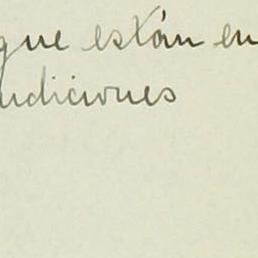 que están en
ndiciones